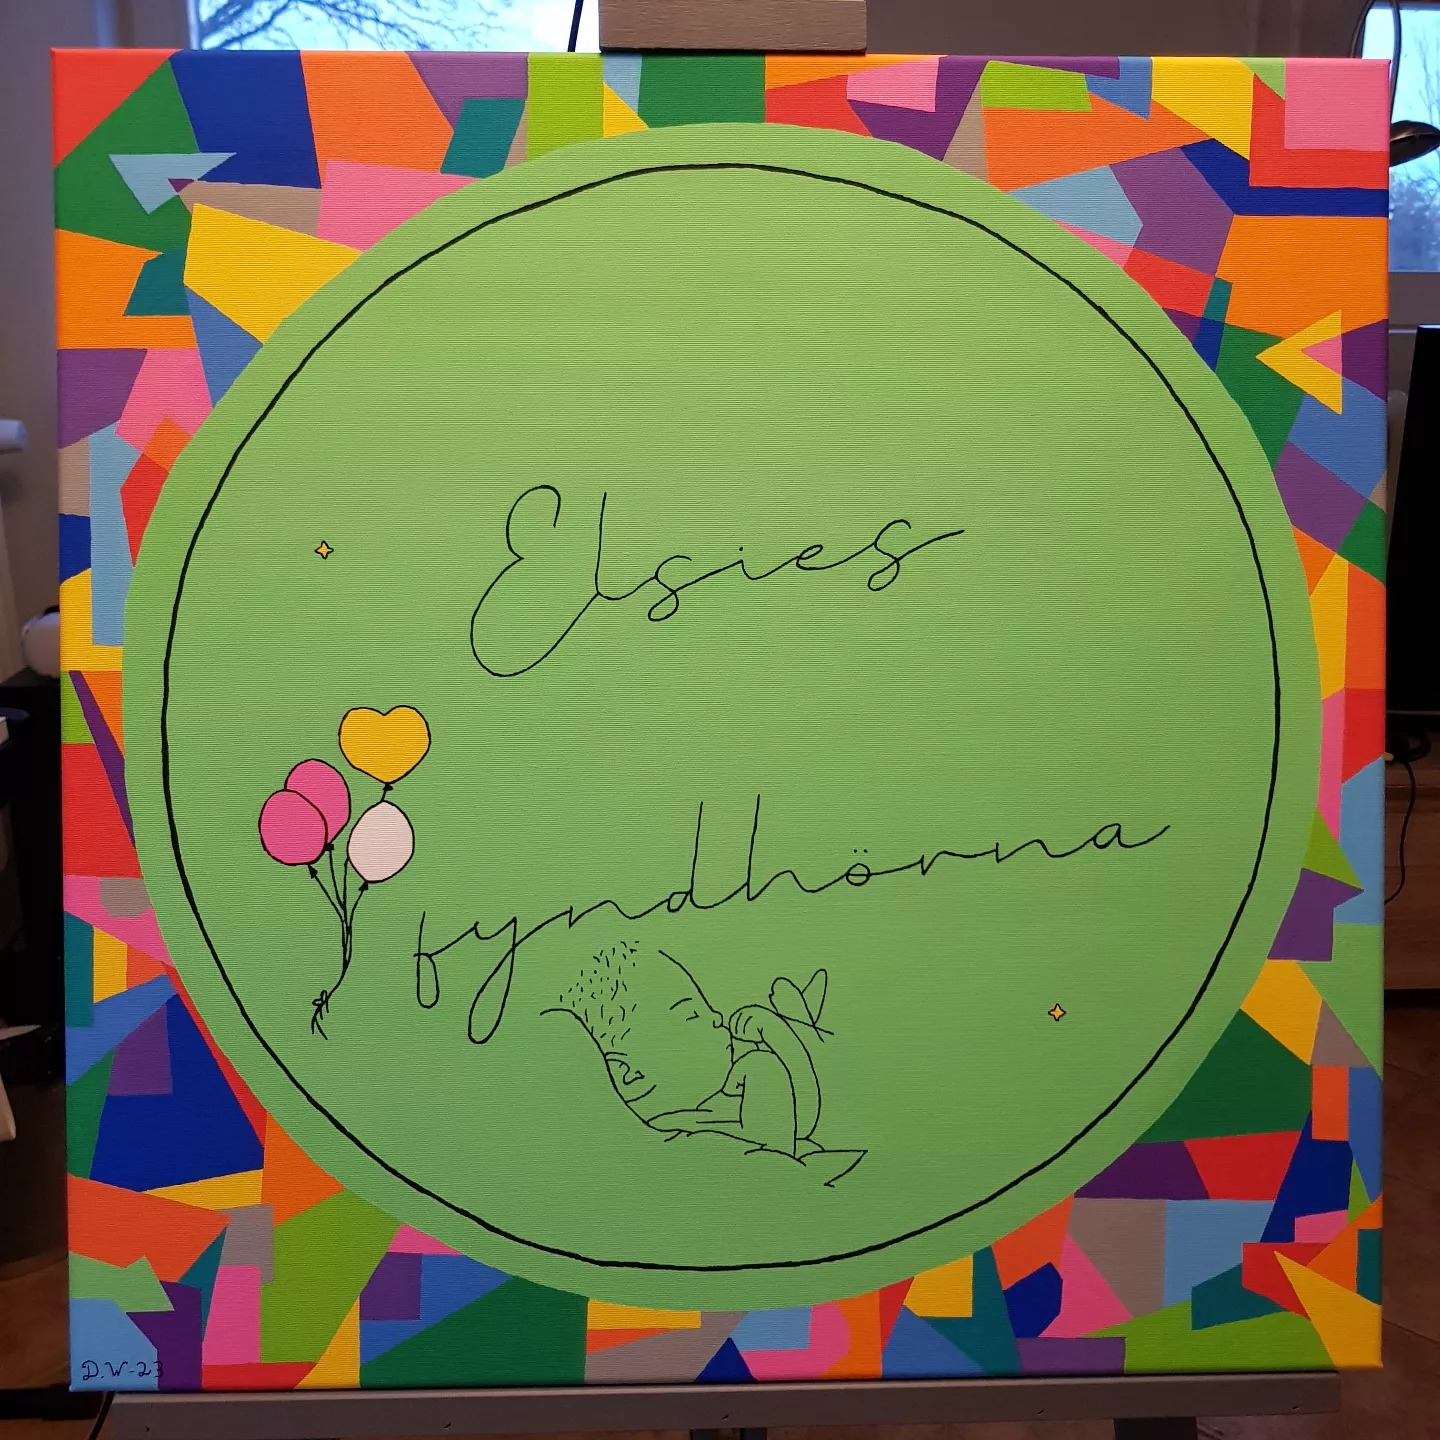 Elsies
fyndhörna
D.W-23